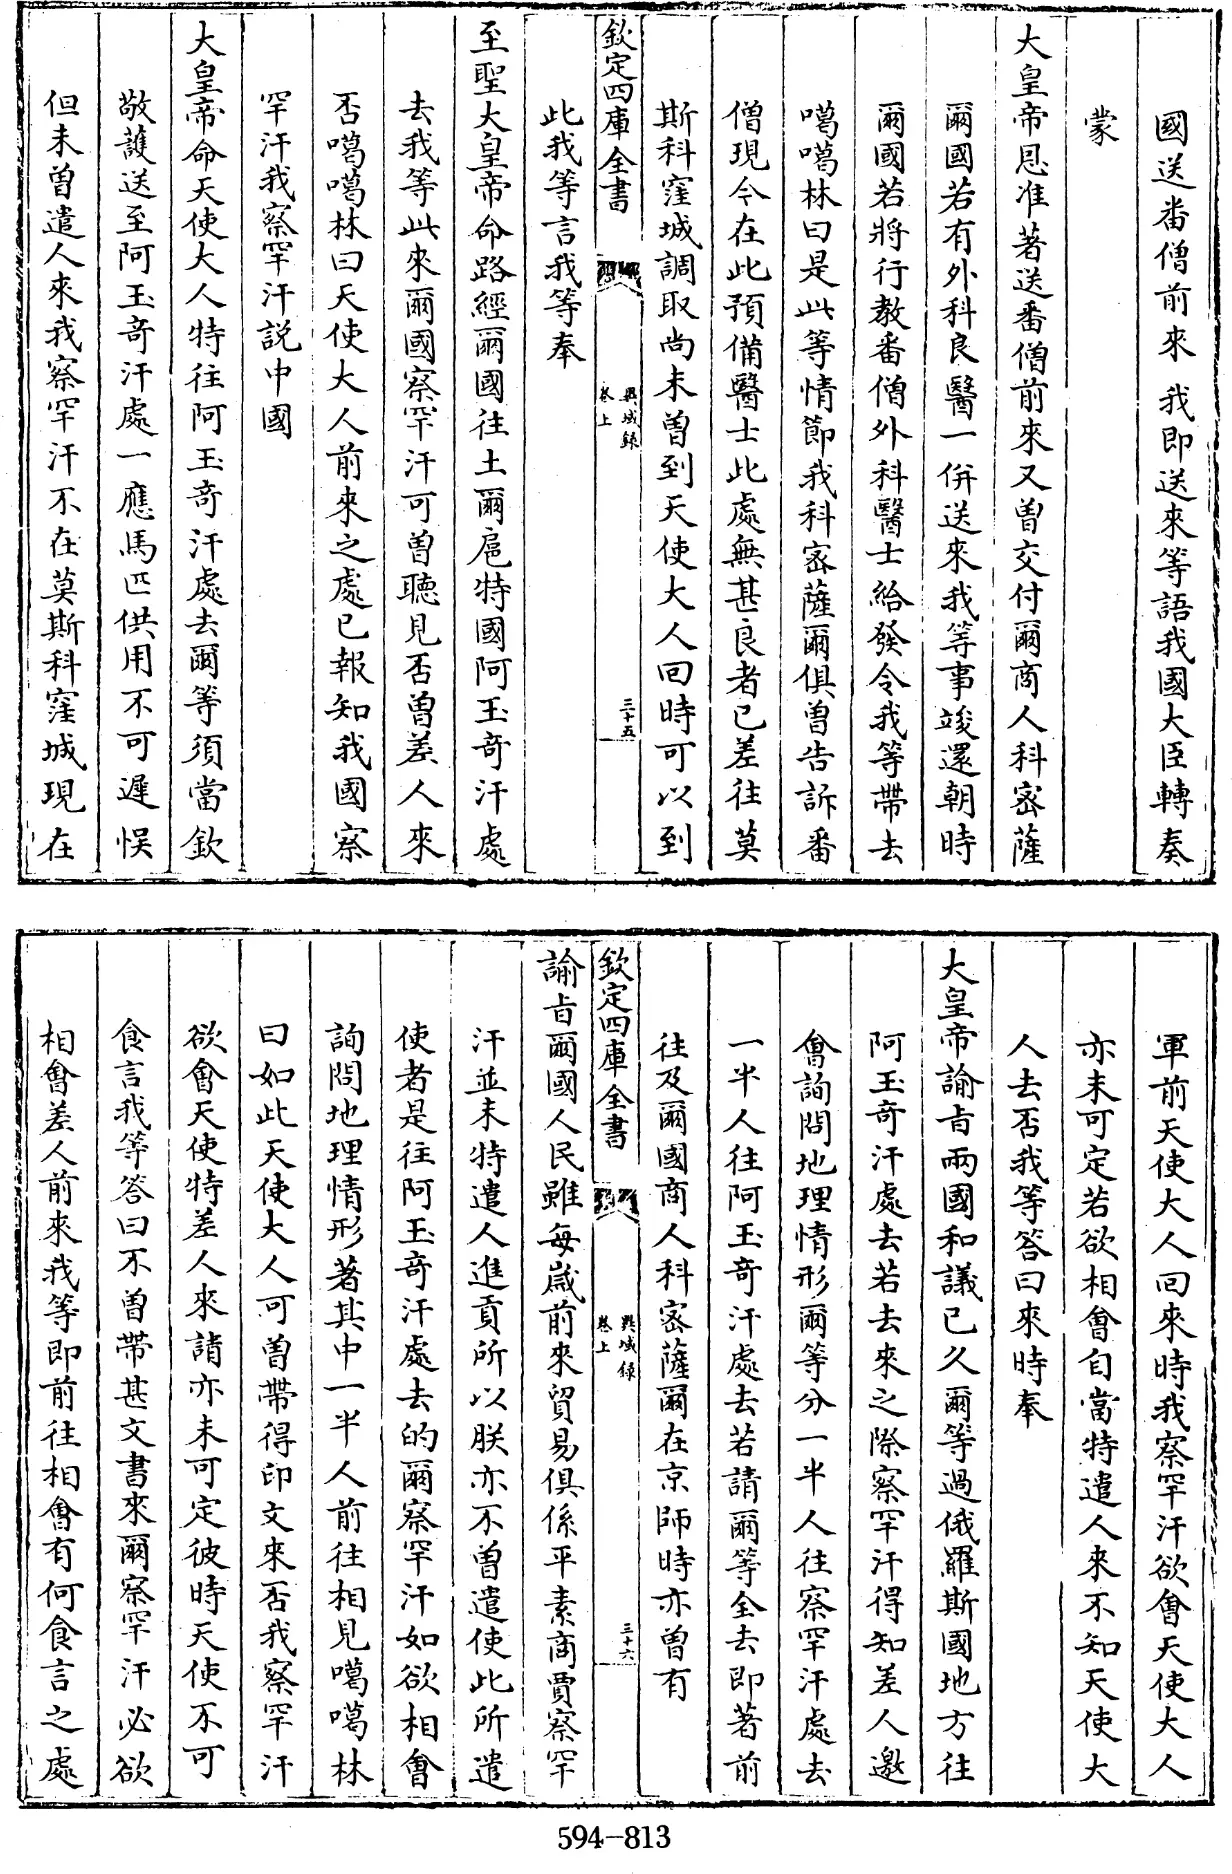 國送番僧前來我即送來等語我國大臣轉奏
蒙
大皇帝恩准著送番僧前來又曾交付爾商人科宻薩
爾國若有外科良醫一併送來我等事竣還朝時
爾國若將行教番僧外科醫士給發令我等帶去
噶噶林曰是此等情節我科宻薩爾俱曾告訴番
僧現今在此預備醫士此處無甚良者已差往莫
斯科窪城調取尚未曾到天使大人回時可以到
欽定四庫全書
異域録
卷上
三十五
此我等言我等奉
至聖大皇帝命路經爾國往土爾扈特國阿玉竒汗處
去我等此來爾國察罕汗可曾聽見否曾差人來
否噶噶林曰天使大人前來之處已報知我國察
罕汗我察罕汗説中國
大皇帝命天使大人特往阿玉竒汗處去爾等須當欽
敬護送至阿玉竒汗處一應馬匹供用不可遲悞
但未曾遣人來我察罕汗不在莫斯科窪城現在
軍前天使大人回來時我察罕汗欲會天使大人
亦未可定若欲相會自當特遣人來不知天使大
人去否我等答曰來時奉
大皇帝諭旨兩國和議已久爾等過俄羅斯國地方往
阿玉竒汗處去若去來之際察罕汗得知差人邀
會詢問地理情形爾等分一半人往察罕汗處去
一半人往阿玉竒汗處去若請爾等全去即著前
往及爾國商人科宻薩爾在京師時亦曾有
欽定四庫全書
異域録
卷上
三十六
諭旨爾國人民雖每歳前來貿易俱係平素商賈察罕
汗並未特遣人進貢所以朕亦不曾遣使此所遣
使者是往阿玉竒汗處去的爾察罕汗如欲相會
詢問地理情形著其中一半人前往相見噶噶林
曰如此天使大人可曾帶得印文來否我察罕汗
欲會天使特差人來請亦未可定彼時天使不可
食言我等答曰不曾帶甚文書來爾察罕汗必欲
相會差人前來我等即前往相會有何食言之處
594-813